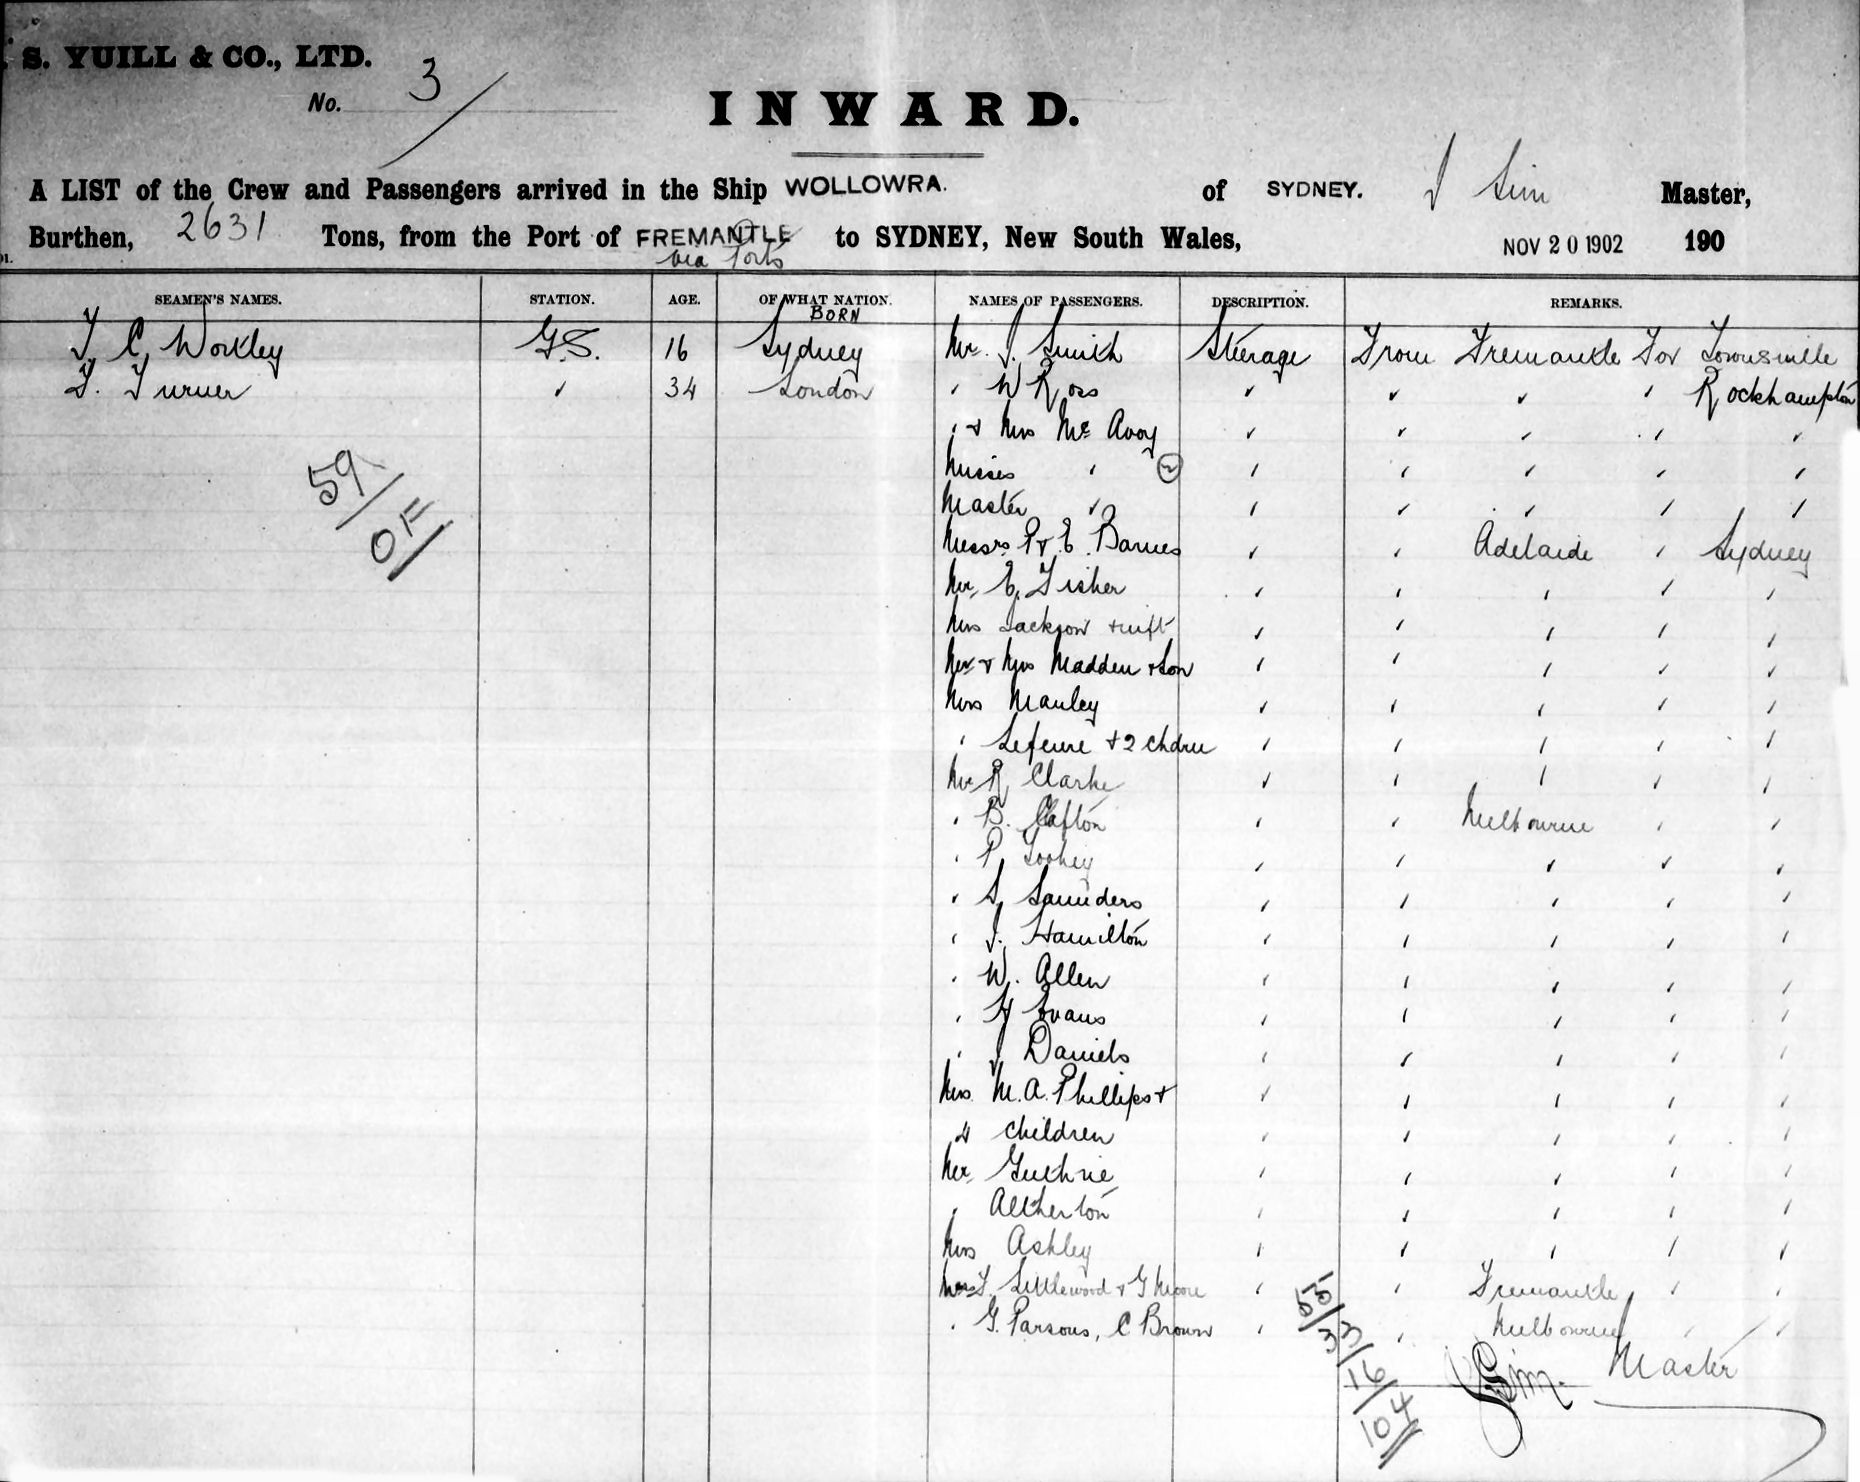 S. YUILL & CO., LTD.
No. 3
INWARD.
A LIST of the Crew and Passengers arrived in the Ship WOLLOWRA. of SYDNEY. J Sim Master,
Burthen, 2631 Tons, from the Port of FREMANTLE to SYDNEY, New South Wales, NOV 20 1902 190
via Ports
SEAMEN'S NAMES. STATION. AGE. OF WHAT NATION. NAMES OF PASSENGERS. DESCRIPTION. REMARKS.
BORN
T C Workley G.S. 16 Sydney Mr. J. Smith Steerage From Fremantle For Townsville
T. Turner " 34 London " W Ross " " " " Rockhampton
" + Mrs Mc Avoy " " " " "
Misses " 2 " " " " "
Master " " " " " "
Messrs P + E. Barnes " " Adelaide " Sydney
Mr. E. Fisher " " " " "
Mrs Jackson + inft " " " " "
Mr + Mrs Madden + Son " " " " "
Mrs Manley " " " " "
" Lefeuvre + 2 chdrn " " " " "
Mr R Clarke " " " " "
" B. Clafton " " Melbourne " "
" P Toohey " " " " "
" S Saunders " " " " "
" J. Hamilton " " " " "
" W. Allen " " " " "
" H Evans " " " " "
" J Daniels " " " " "
Mrs M. A. Phillips + " " " " "
4 children " " " " "
Mr Guthrie " " " " "
" Allherton " " " " "
Mrs Ashley " " " " "
F. Littlewood + G Moore " " Fremantle " "
" G. Parsons, C Brown " " Melbourne " "
59
OF
55
33
16
104
J Sim. Master